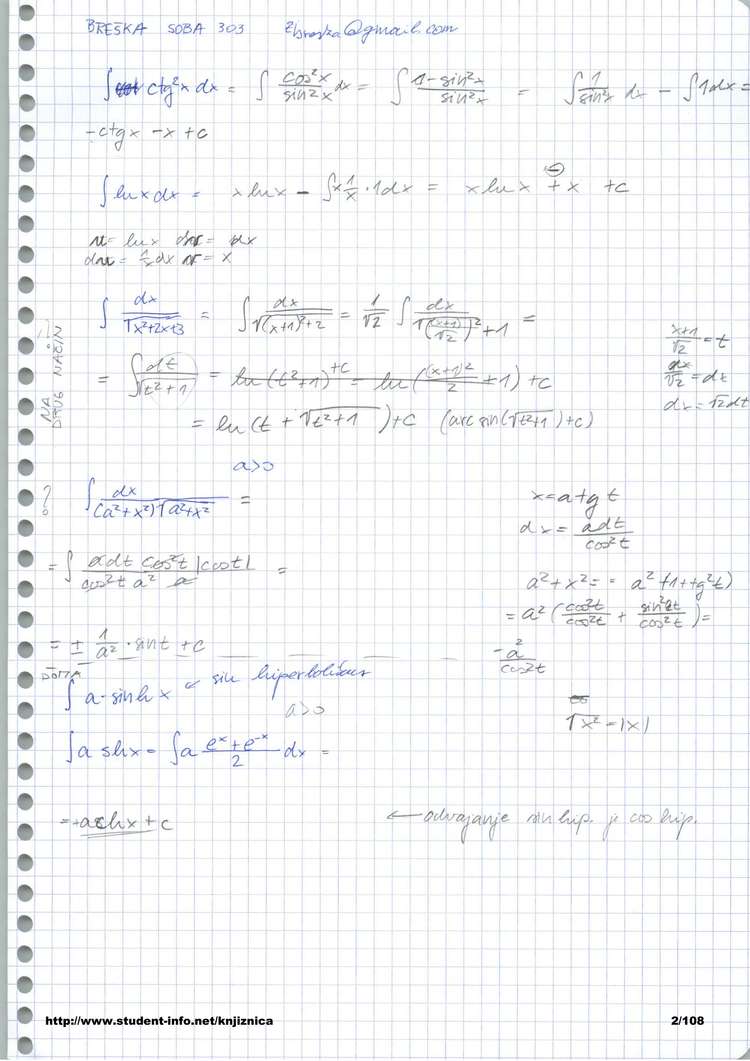 BREŠKA SOBA 303 zbreska@gmail.com
∫ ctg²x dx = ∫ cos²x/sin²x dx = ∫ (1-sin²x)/sin²x = ∫ 1/sin²x dx - ∫1dx =
-ctgx -x +c
∫ lnx dx = x lnx - ∫x 1/x · 1dx = x lnx + x +c
u = lnx dv = dx
du = 1/x dx v = x
∫ dx/√(x²+2x+3) = ∫ dx/√((x+1)²+2) = 1/√2 ∫ dx/√(((x+1)/√2)²+1) =
(x+1)/√2 = t
dx/√2 = dt
dx = √2dt
NA DRUG NAČIN
= ∫ dt/√(t²+1) = ln(t²+1)+c = ln((x+1)²/2 +1) + c
= ln(t + √(t²+1)) + c (arc sin(√(t²+1) + c)
a>0
? ∫ dx/((a²+x²)√(a²+x²)) =
x = a tg t
dx = adt/cos²t
= ∫ adt cos²t |cost| / cos²t a² a =
a²+x² = a²(1+tg²t)
= a²(cos²t/cos²t + sin²t/cos²t) =
= ± 1/a² · sint + c
- a²/cos²t
DOMA
∫ a·sinh x ← sin hiperbolični
a>0
√x² = |x|
∫a shx = ∫a (eˣ+e⁻ˣ)/2 dx =
= achx + c ← odvajanje sin hip. je cos hip.
http://www.student-info.net/knjiznica 2/108